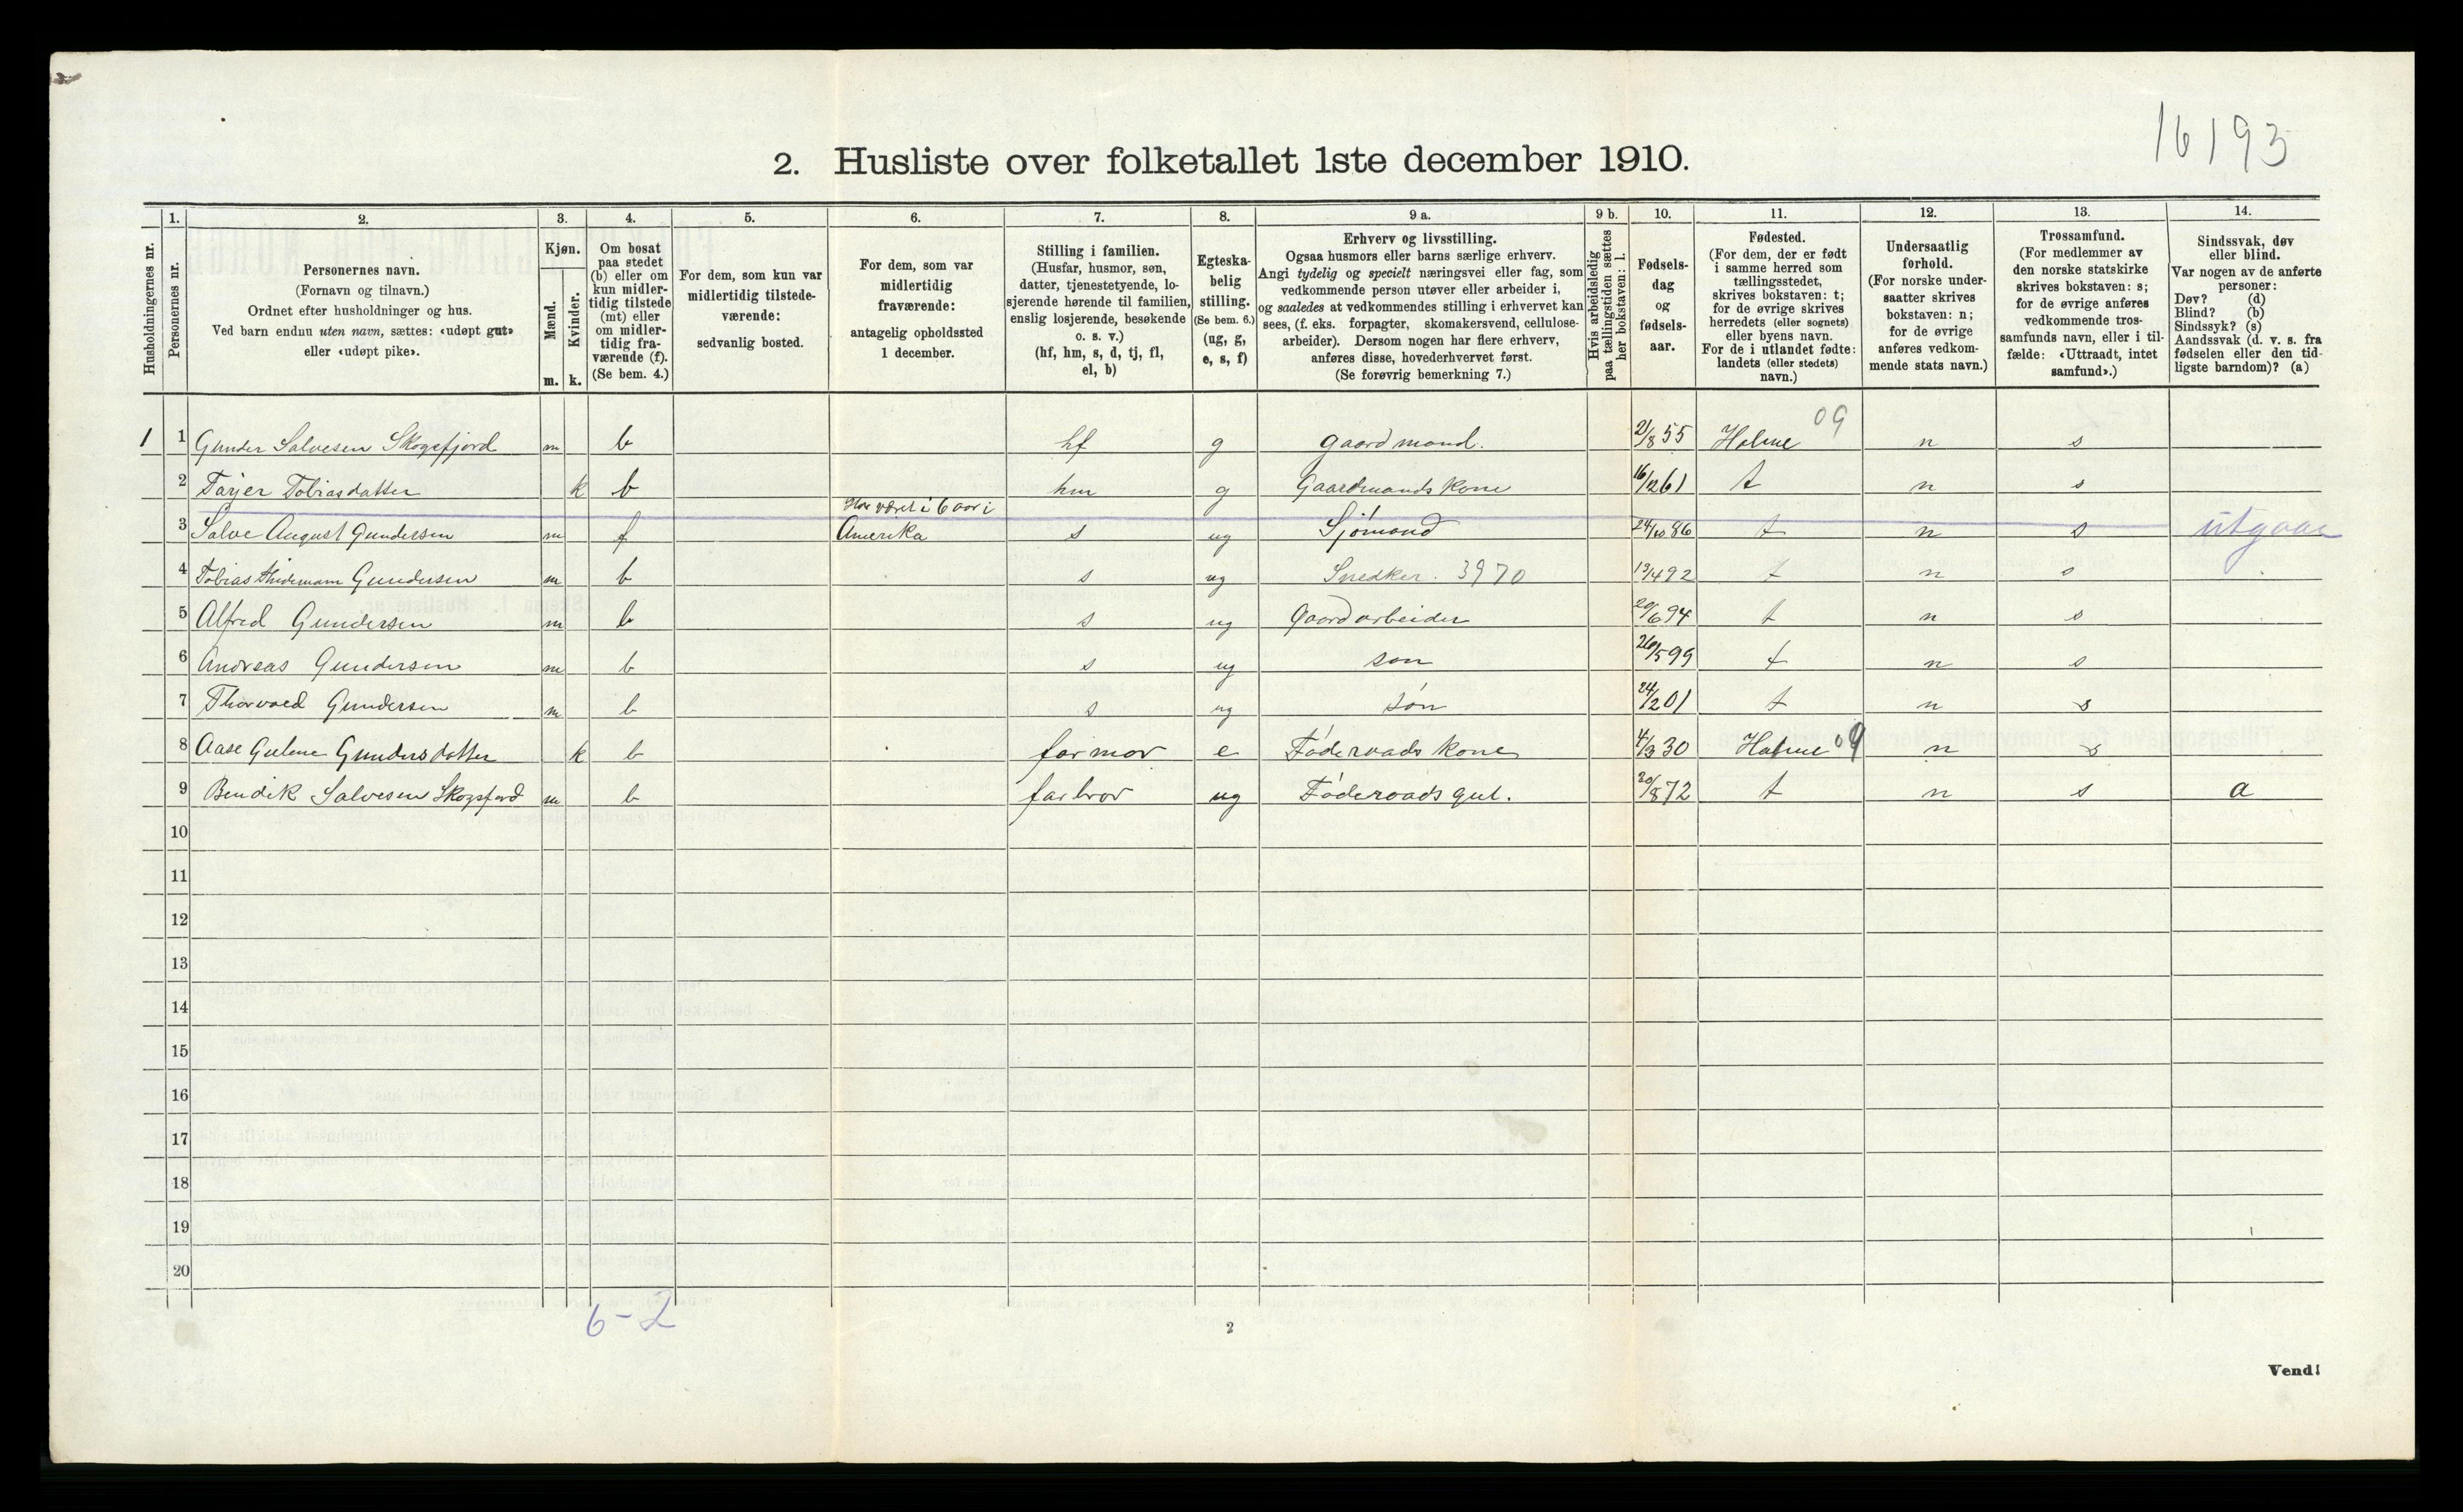 16193
2. Husliste over folketallet 1ste december 1910.
Husholdningernes nr.
1. Personernes nr.
2. Personernes navn.
(Fornavn og tilnavn.)
Ordnet efter husholdninger og hus.
Ved barn endnu uten navn, sættes: «udøpt gut»
eller «udøpt pike».
3. Kjøn.
Mænd. m.
Kvinder. k.
4. Om bosat
paa stedet
(b) eller om
kun midler-
tidig tilstede
(mt) eller
om midler-
tidig fra-
værende (f).
(Se bem. 4.)
5. For dem, som kun var
midlertidig tilstede-
værende:
sedvanlig bosted.
6. For dem, som var
midlertidig
fraværende:
antagelig opholdssted
1 december.
7. Stilling i familien.
(Husfar, husmor, søn,
datter, tjenestetyende, lo-
sjerende hørende til familien,
enslig losjerende, besøkende
o. s. v.)
(hf, hm, s, d, tj, fl,
el, b)
8. Egteska-
belig
stilling.
(Se bem. 6.)
(ug, g,
e, s, f)
9 a. Erhverv og livsstilling.
Ogsaa husmors eller barns særlige erhverv.
Angi tydelig og specielt næringsvei eller fag, som
vedkommende person utøver eller arbeider i,
og saaledes at vedkommendes stilling i erhvervet kan
sees, (f. eks. forpagter, skomakersvend, cellulose-
arbeider). Dersom nogen har flere erhverv,
anføres disse, hovederhvervet først.
(Se forøvrig bemerkning 7.)
9 b. Hvis arbeidsledig
paa tællingstiden sættes
her bokstaven: l.
10. Fødsels-
dag
og
fødsels-
aar.
11. Fødested.
(For dem, der er født
i samme herred som
tællingsstedet,
skrives bokstaven: t;
for de øvrige skrives
herredets (eller sognets)
eller byens navn.
For de i utlandet fødte:
landets (eller stedets)
navn.)
12. Undersaatlig
forhold.
(For norske under-
saatter skrives
bokstaven: n;
for de øvrige
anføres vedkom-
mende stats navn.)
13. Trossamfund.
(For medlemmer av
den norske statskirke
skrives bokstaven: s;
for de øvrige anføres
vedkommende tros-
samfunds navn, eller i til-
fælde: «Uttraadt, intet
samfund».)
14. Sindssvak, døv
eller blind.
Var nogen av de anførte
personer:
Døv? (d)
Blind? (b)
Sindssyk? (s)
Aandssvak (d. v. s. fra
fødselen eller den tid-
ligste barndom)? (a)
1 1 Gunder Salvesen Skogsfjord m b hf g gaardmand. 21/8 55 Holme 09 n s
2 Tarjer Tobiasdatter k b hm g Gaardmands kone 16/12 61 t n s
3 Salve August Gundersen m f Har været i 6 aar i Amerika s ug Sjømand 24/10 86 t n s utgaar
4 Tobias Gundersen m b s ug Snedker. 3970 13/4 92 t n s
5 Alfred Gundersen m b s ug Gaardarbeider 20/6 94 t n s
6 Andreas Gundersen m b s ug søn 26/5 99 t n s
7 Thorvald Gundersen m b s ug søn 24/2 01 t n s
8 Aase Gundersdatter k b farmor e Føderaadskone 4/3 30 Holme 09 n s
9 Bendik Salvesen Skogsfjord m b farbror ug Føderaadsgut. 30/8 72 t n s a
10
11
12
13
14
15
16
17
18
19
20
6-2
2
Vend!